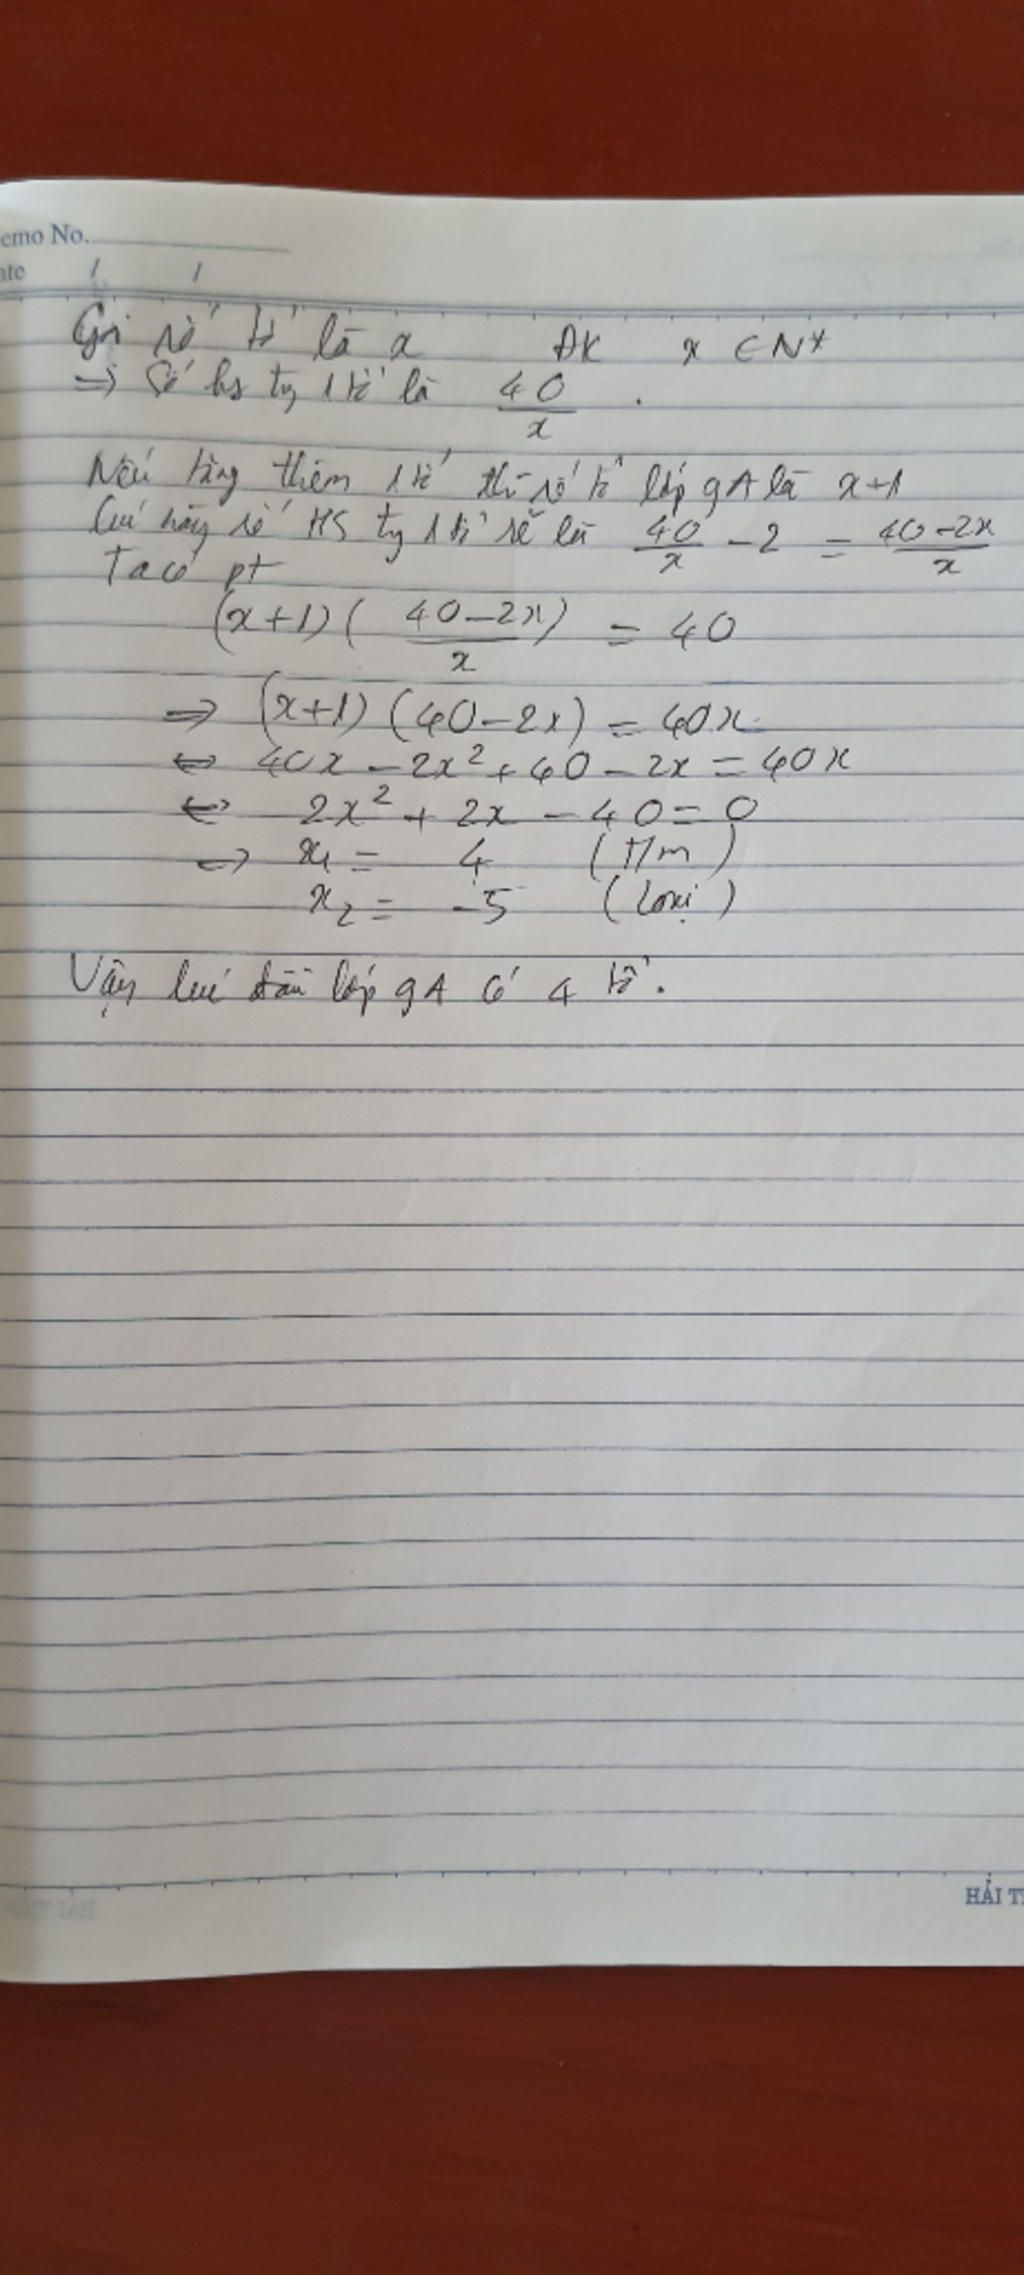 emo No.
ate / /
Gọi số tổ là x ĐK x ∈ N*
=> Số hs tg 1 tổ là 40/x .
Nếu tăng thêm 1 tổ thì số tổ lớp 9A là x+1
số HS tg 1 tổ sẽ là 40/x - 2 = 40-2x/x
Ta có pt
(x+1)( 40-2x/x ) = 40
=> (x+1)(40-2x) = 40x
<=> 40x - 2x² + 40 - 2x = 40x
<=> 2x² + 2x - 40 = 0
=> x₁ = 4 (T/m)
x₂ = -5 (Loại)
Vậy lúc đầu lớp 9A có 4 tổ.
HẢI T